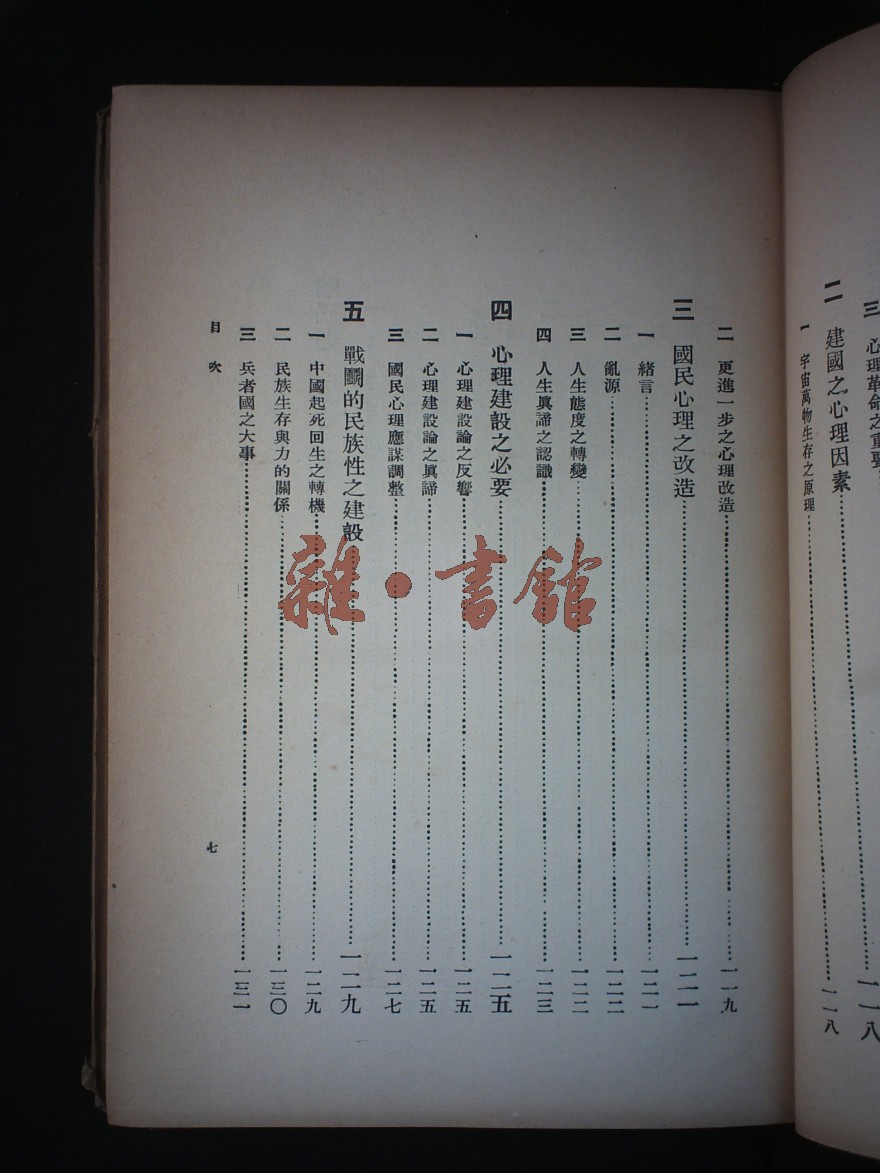 三 心理革命之重要 一一八
二 建國之心理因素 一一八
一 宇宙萬物生存之原理 一一八
二 更進一步之心理改造 一一九
三 國民心理之改造 一二一
一 緒言 一二一
二 亂源 一二二
三 人生態度之轉變 一二二
四 人生眞諦之認識 一二三
四 心理建設之必要 一二五
一 心理建設論之反響 一二五
二 心理建設論之眞諦 一二五
三 國民心理應謀調整 一二七
五 戰鬭的民族性之建設 一二九
一 中國起死回生之轉機 一二九
二 民族生存與力的關係 一三〇
三 兵者國之大事 一三一
目次 七
雜·書館